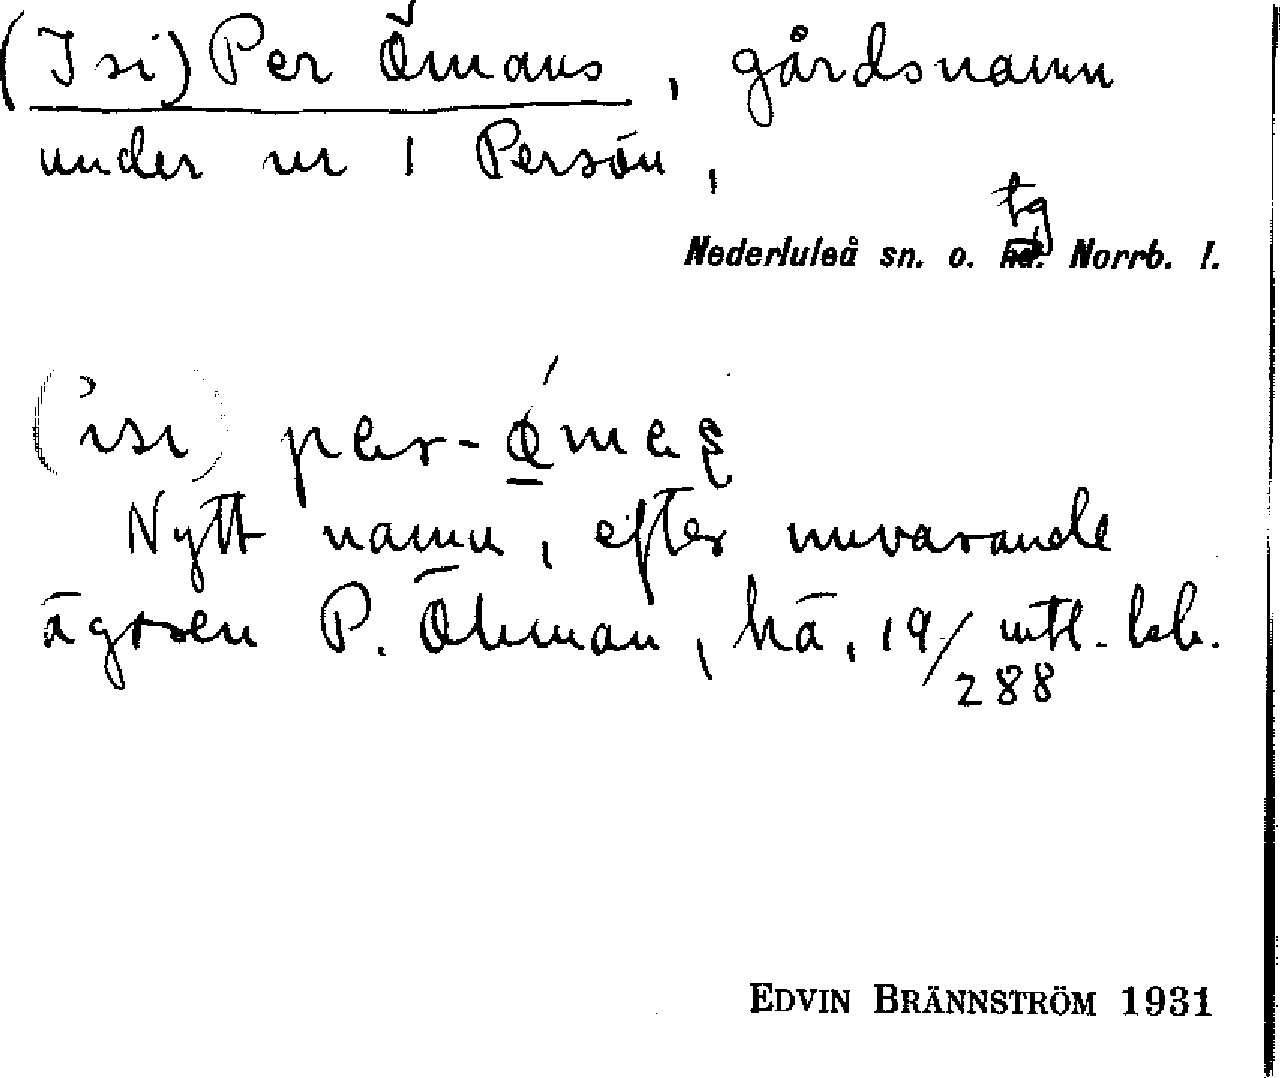 (Isi) Per Ömans, gårdsnamn
under nr 1 Persön,
tg
Nederluleå sn. o. Norrb. l.
(isi) per-
Nytt namn, efter nuvarande
ägaren P. Öhman, hä, 19/288 mtl.
EDVIN BRÄNNSTRÖM 1931